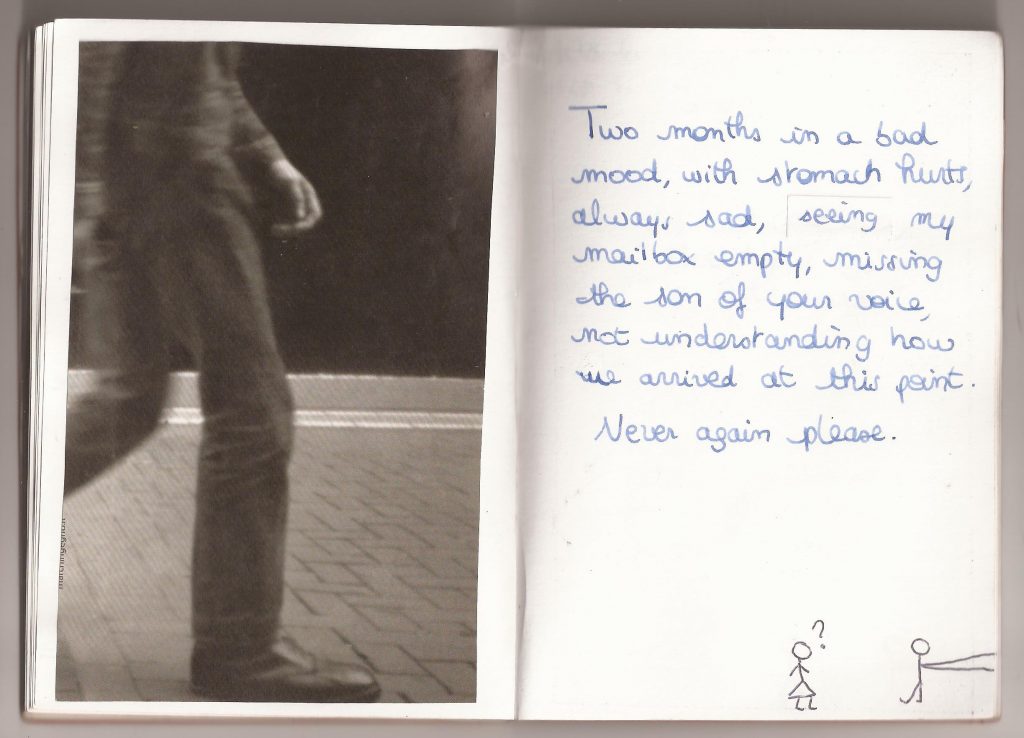 Two months in a bad
mood, with stomach hurts,
always sad, seeing my
mailbox empty, missing
the son of your voice,
not understanding how
we arrived at this point.
Never again please.
?